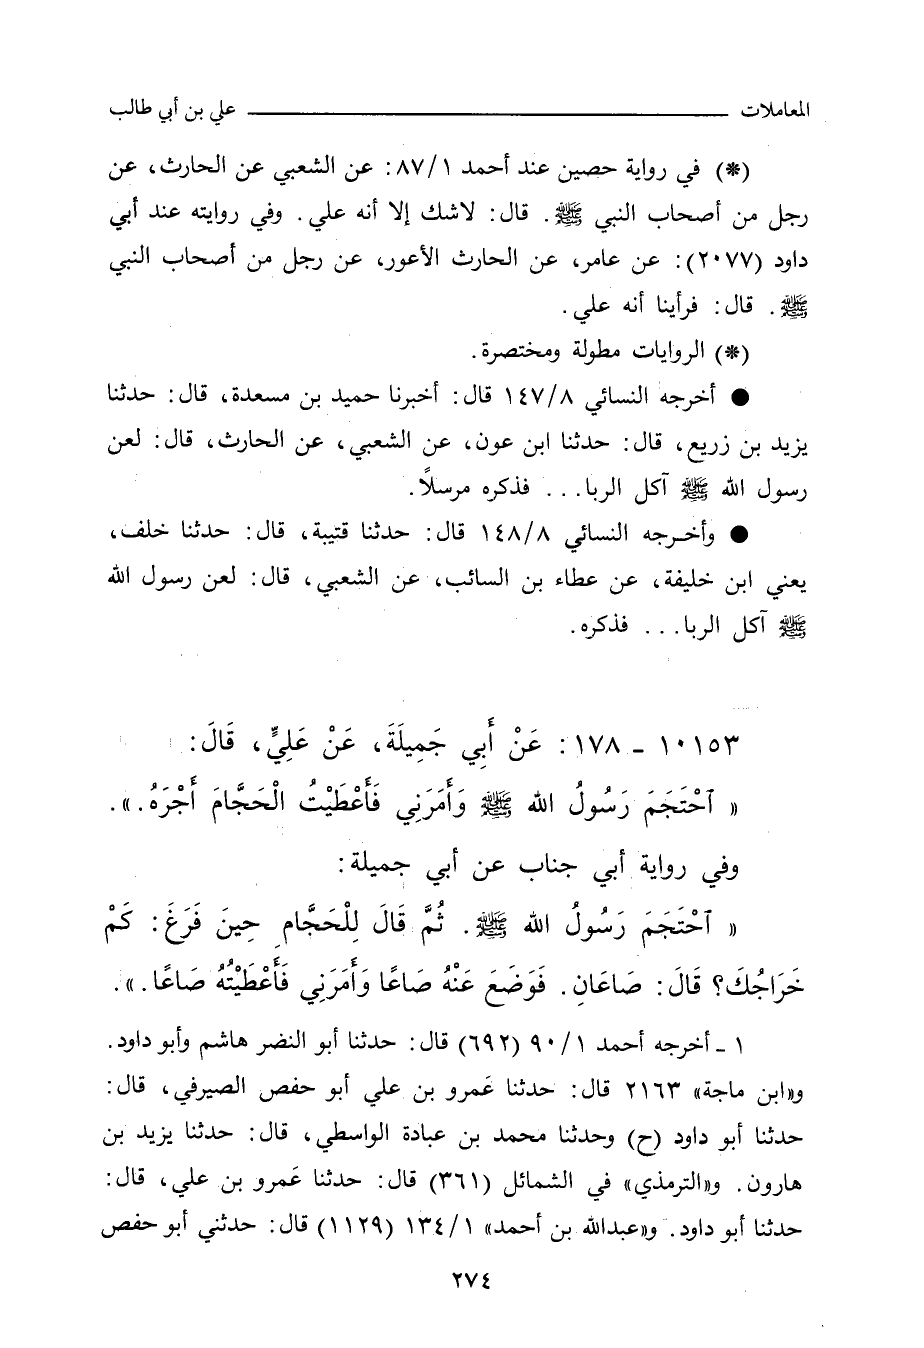 المعاملات علي بن أبي طالب
(*) في رواية حصين عند أحمد ٨٧/١: عن الشعبي عن الحارث، عن
رجل من أصحاب النبي ﷺ. قال: لاشك إلا أنه علي. وفي روايته عند أبي
داود (٢٠٧٧): عن عامر، عن الحارث الأعور، عن رجل من أصحاب النبي
ﷺ. قال: فرأينا أنه علي.
(*) الروايات مطولة ومختصرة.
● أخرجه النسائي ١٤٧/٨ قال: أخبرنا حميد بن مسعدة، قال: حدثنا
يزيد بن زريع، قال: حدثنا ابن عون، عن الشعبي، عن الحارث، قال: لعن
رسول الله ﷺ آكل الربا... فذكره مرسلاً.
● وأخرجه النسائي ١٤٨/٨ قال: حدثنا قتيبة، قال: حدثنا خلف،
يعني ابن خليفة، عن عطاء بن السائب، عن الشعبي، قال: لعن رسول الله
ﷺ آكل الربا... فذكره.
١٠١٥٣ - ١٧٨: عَنْ أَبِي جَمِيلَةَ، عَنْ عَلِيٍّ، قَالَ:
« ٱحْتَجَمَ رَسُولُ الله ﷺ وَأَمَرَنِي فَأَعْطَيْتُ الْحَجَّامَ أَجْرَهُ.».
وفي رواية أبي جناب عن أبي جميلة:
« ٱحْتَجَمَ رَسُولُ الله ﷺ. ثُمَّ قَالَ لِلْحَجَّامِ حِينَ فَرَغَ: كَمْ
خَرَاجُكَ؟ قَالَ: صَاعَانِ. فَوَضَعَ عَنْهُ صَاعًا وَأَمَرَنِي فَأَعْطَيْتُهُ صَاعًا.».
١ - أخرجه أحمد ٩٠/١ (٦٩٢) قال: حدثنا أبو النضر هاشم وأبو داود.
و«ابن ماجة» ٢١٦٣ قال: حدثنا عَمرو بن علي أبو حفص الصيرفي، قال:
حدثنا أبو داود (ح) وحدثنا محمد بن عبادة الواسطي، قال: حدثنا يزيد بن
هارون. و«الترمذي» في الشمائل (٣٦١) قال: حدثنا عَمرو بن علي، قال:
حدثنا أبو داود. و«عبدالله بن أحمد» ١٣٤/١ (١١٢٩) قال: حدثني أبو حفص
٢٧٤